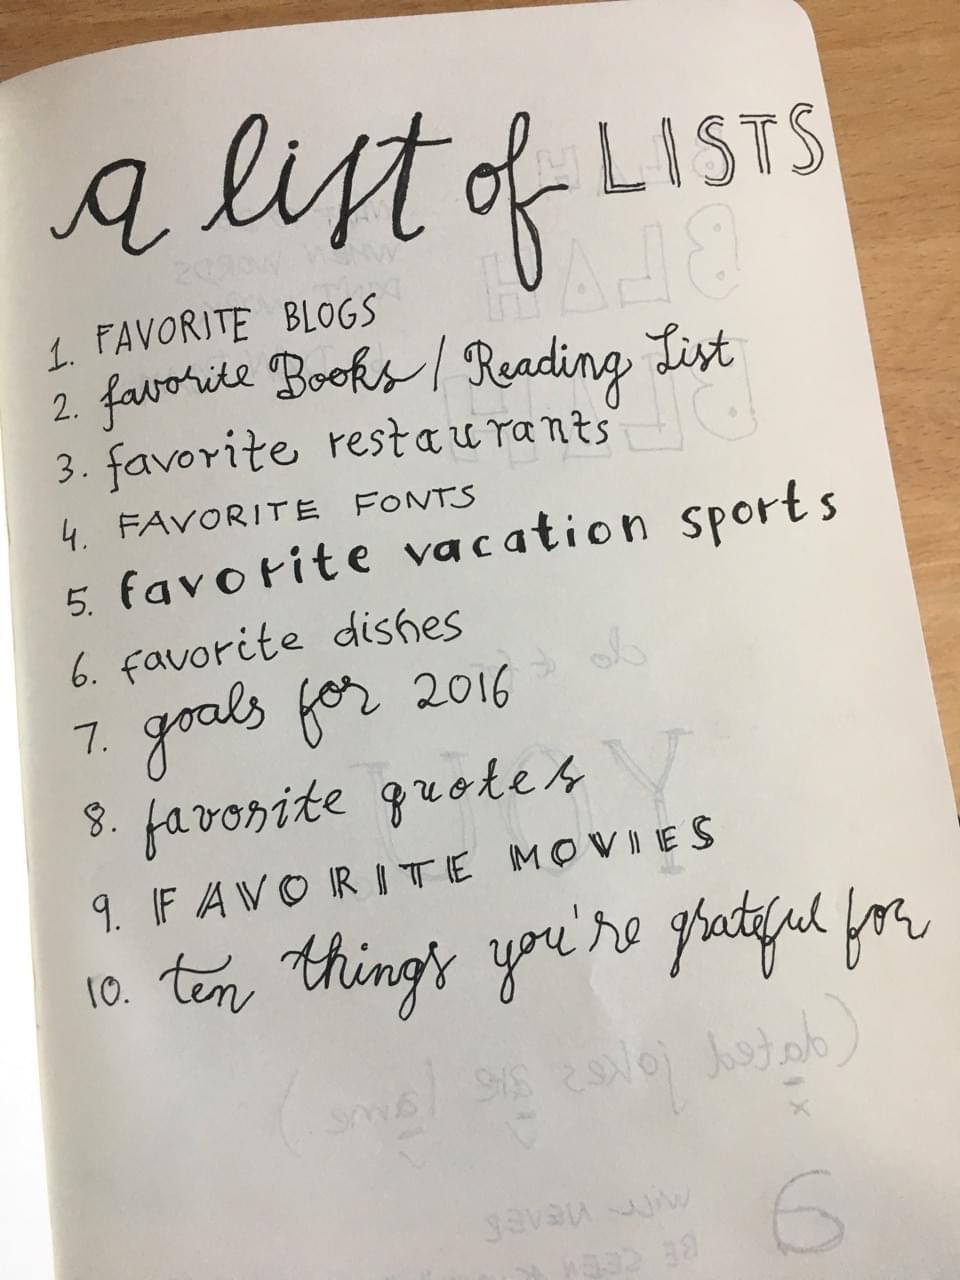 a list of LISTS
1. FAVORITE BLOGS
2. favorite Books / Reading List
3. favorite restaurants
4. FAVORITE FONTS
5. favorite vacation sports
6. favorite dishes
7. goals for 2016
8. favorite quotes
9. FAVORITE MOVIES
10. ten things you're grateful for